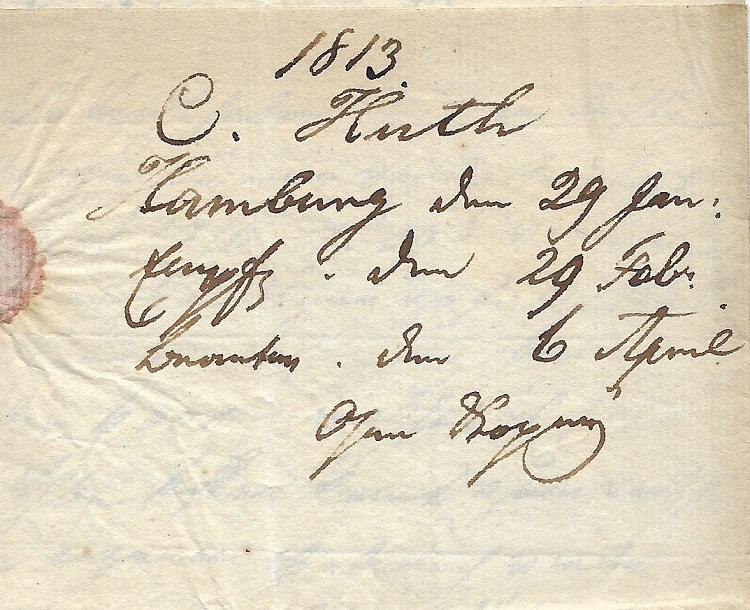 1813.
C. Huth
Hamburg den 29 Jan:
Empf. den 29 Febr.
beantw. den 6 April